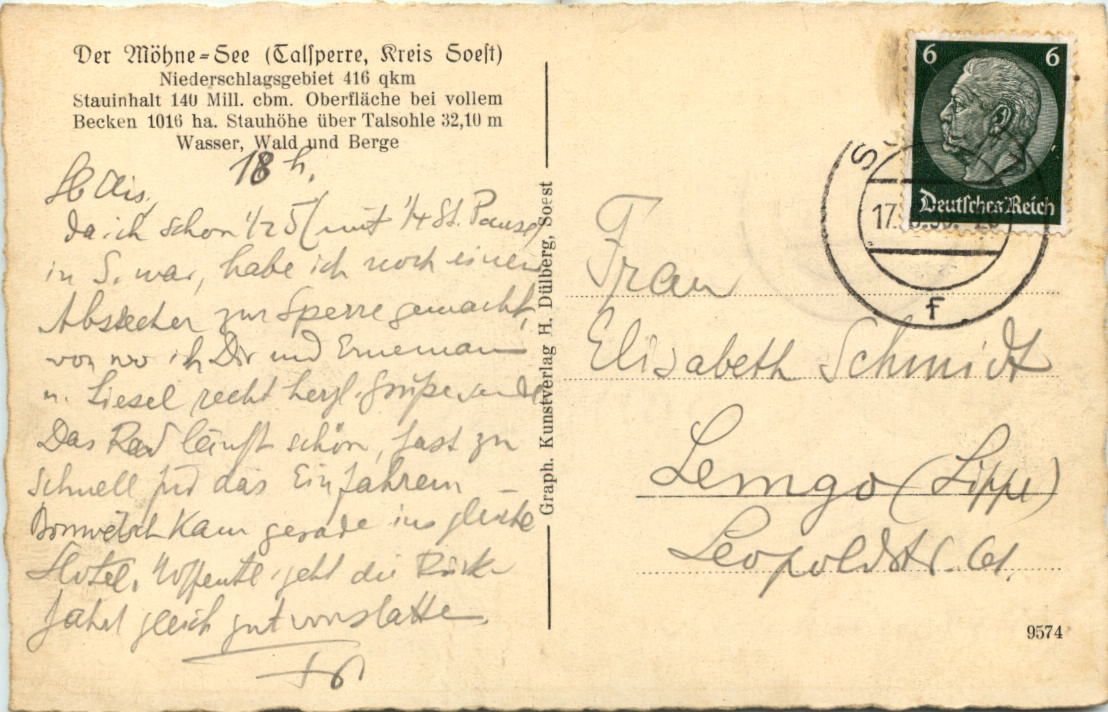 Der Möhne-See (Talsperre, Kreis Soest)
Niederschlagsgebiet 416 qkm
Stauinhalt 140 Mill. cbm. Oberfläche bei vollem
Becken 1016 ha. Stauhöhe über Talsohle 32,10 m
Wasser, Wald und Berge
18 h.
da ich schon 1/2 5 (mit 1/4 St. Pause)
in S. war, habe ich noch einen
Abstecher zur Sperre gemacht,
von wo ich Dir und
u. Liesel recht herzl. Grüße sende
Das Rad läuft schön, fast zu
schnell für das Einfahren
kam gerade ins gleiche
Hotel. Hoffentl. geht die Rück
fahrt gleich gut vonstatten.
Graph. Kunstverlag H. Dülberg, Soest
6 6
Deutsches Reich
S
17.
f
Frau
Elisabeth Schmidt
Lemgo (Lippe)
Leopoldstr. 61.
9574